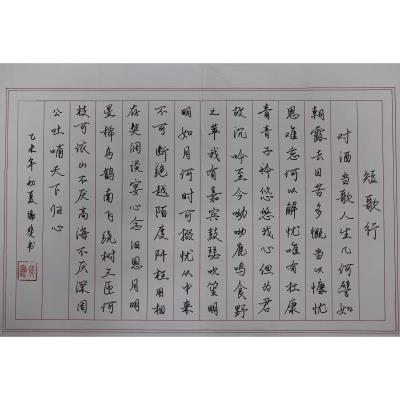 短歌行
对酒当歌人生几何譬如
朝露去日苦多慨当以慷忧
思难忘何以解忧唯有杜康
青青子衿悠悠我心但为君
故沉吟至今呦呦鹿鸣食野
之苹我有嘉宾鼓瑟吹笙明
明如月何时可掇忧从中来
不可断绝越陌度阡枉用相
存契阔谈宴心念旧恩月明
星稀乌鹊南飞绕树三匝何
枝可依山不厌高海不厌深周
公吐哺天下归心
乙未年初夏 书